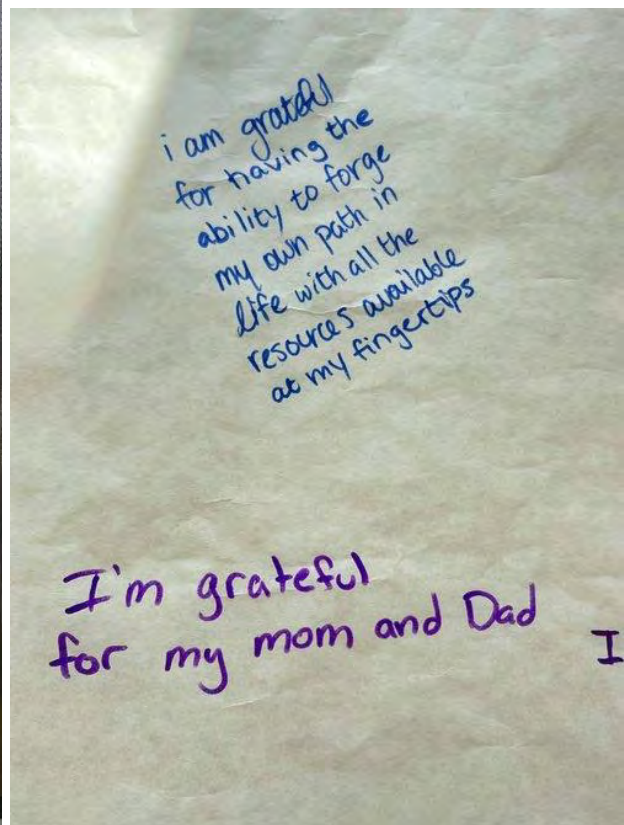 i am grateful
for having the
ability to forge
my own path in
life with all the
resources available
at my fingertips
I'm grateful
for my mom and Dad
I